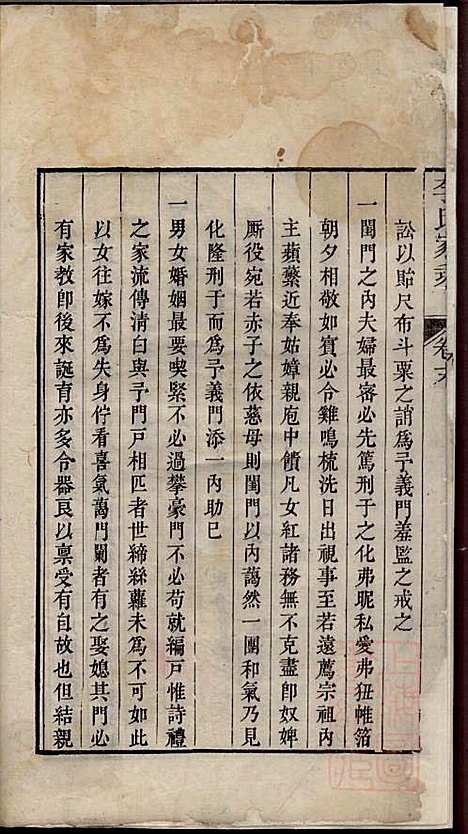 李氏家乘 卷六
訟以貽尺布斗粟之誚為予義門羞監之戒之
一閨門之內夫婦最審必先篤刑于之化弗昵私愛弗狃帷箔
朝夕相敬如賓必令雞鳴梳洗日出視事至若遠薦宗祖內
主蘋蘩近奉姑嫜親庖中饋凡女紅諸務無不克盡卽奴婢
厮役宛若赤子之依慈母則閨門以內藹然一團和氣乃見
化隆刑于而為予義門添一內助已
一男女婚姻最要喫緊不必過攀豪門不必苟就編戸惟詩禮
之家流傳清白與予門戸相匹者世締絲蘿未為不可如此
以女往嫁不為失身佇看喜氣藹門闌者有之娶媳其門必
有家教卽後來誕育亦多令器良以稟受有自故也但結親